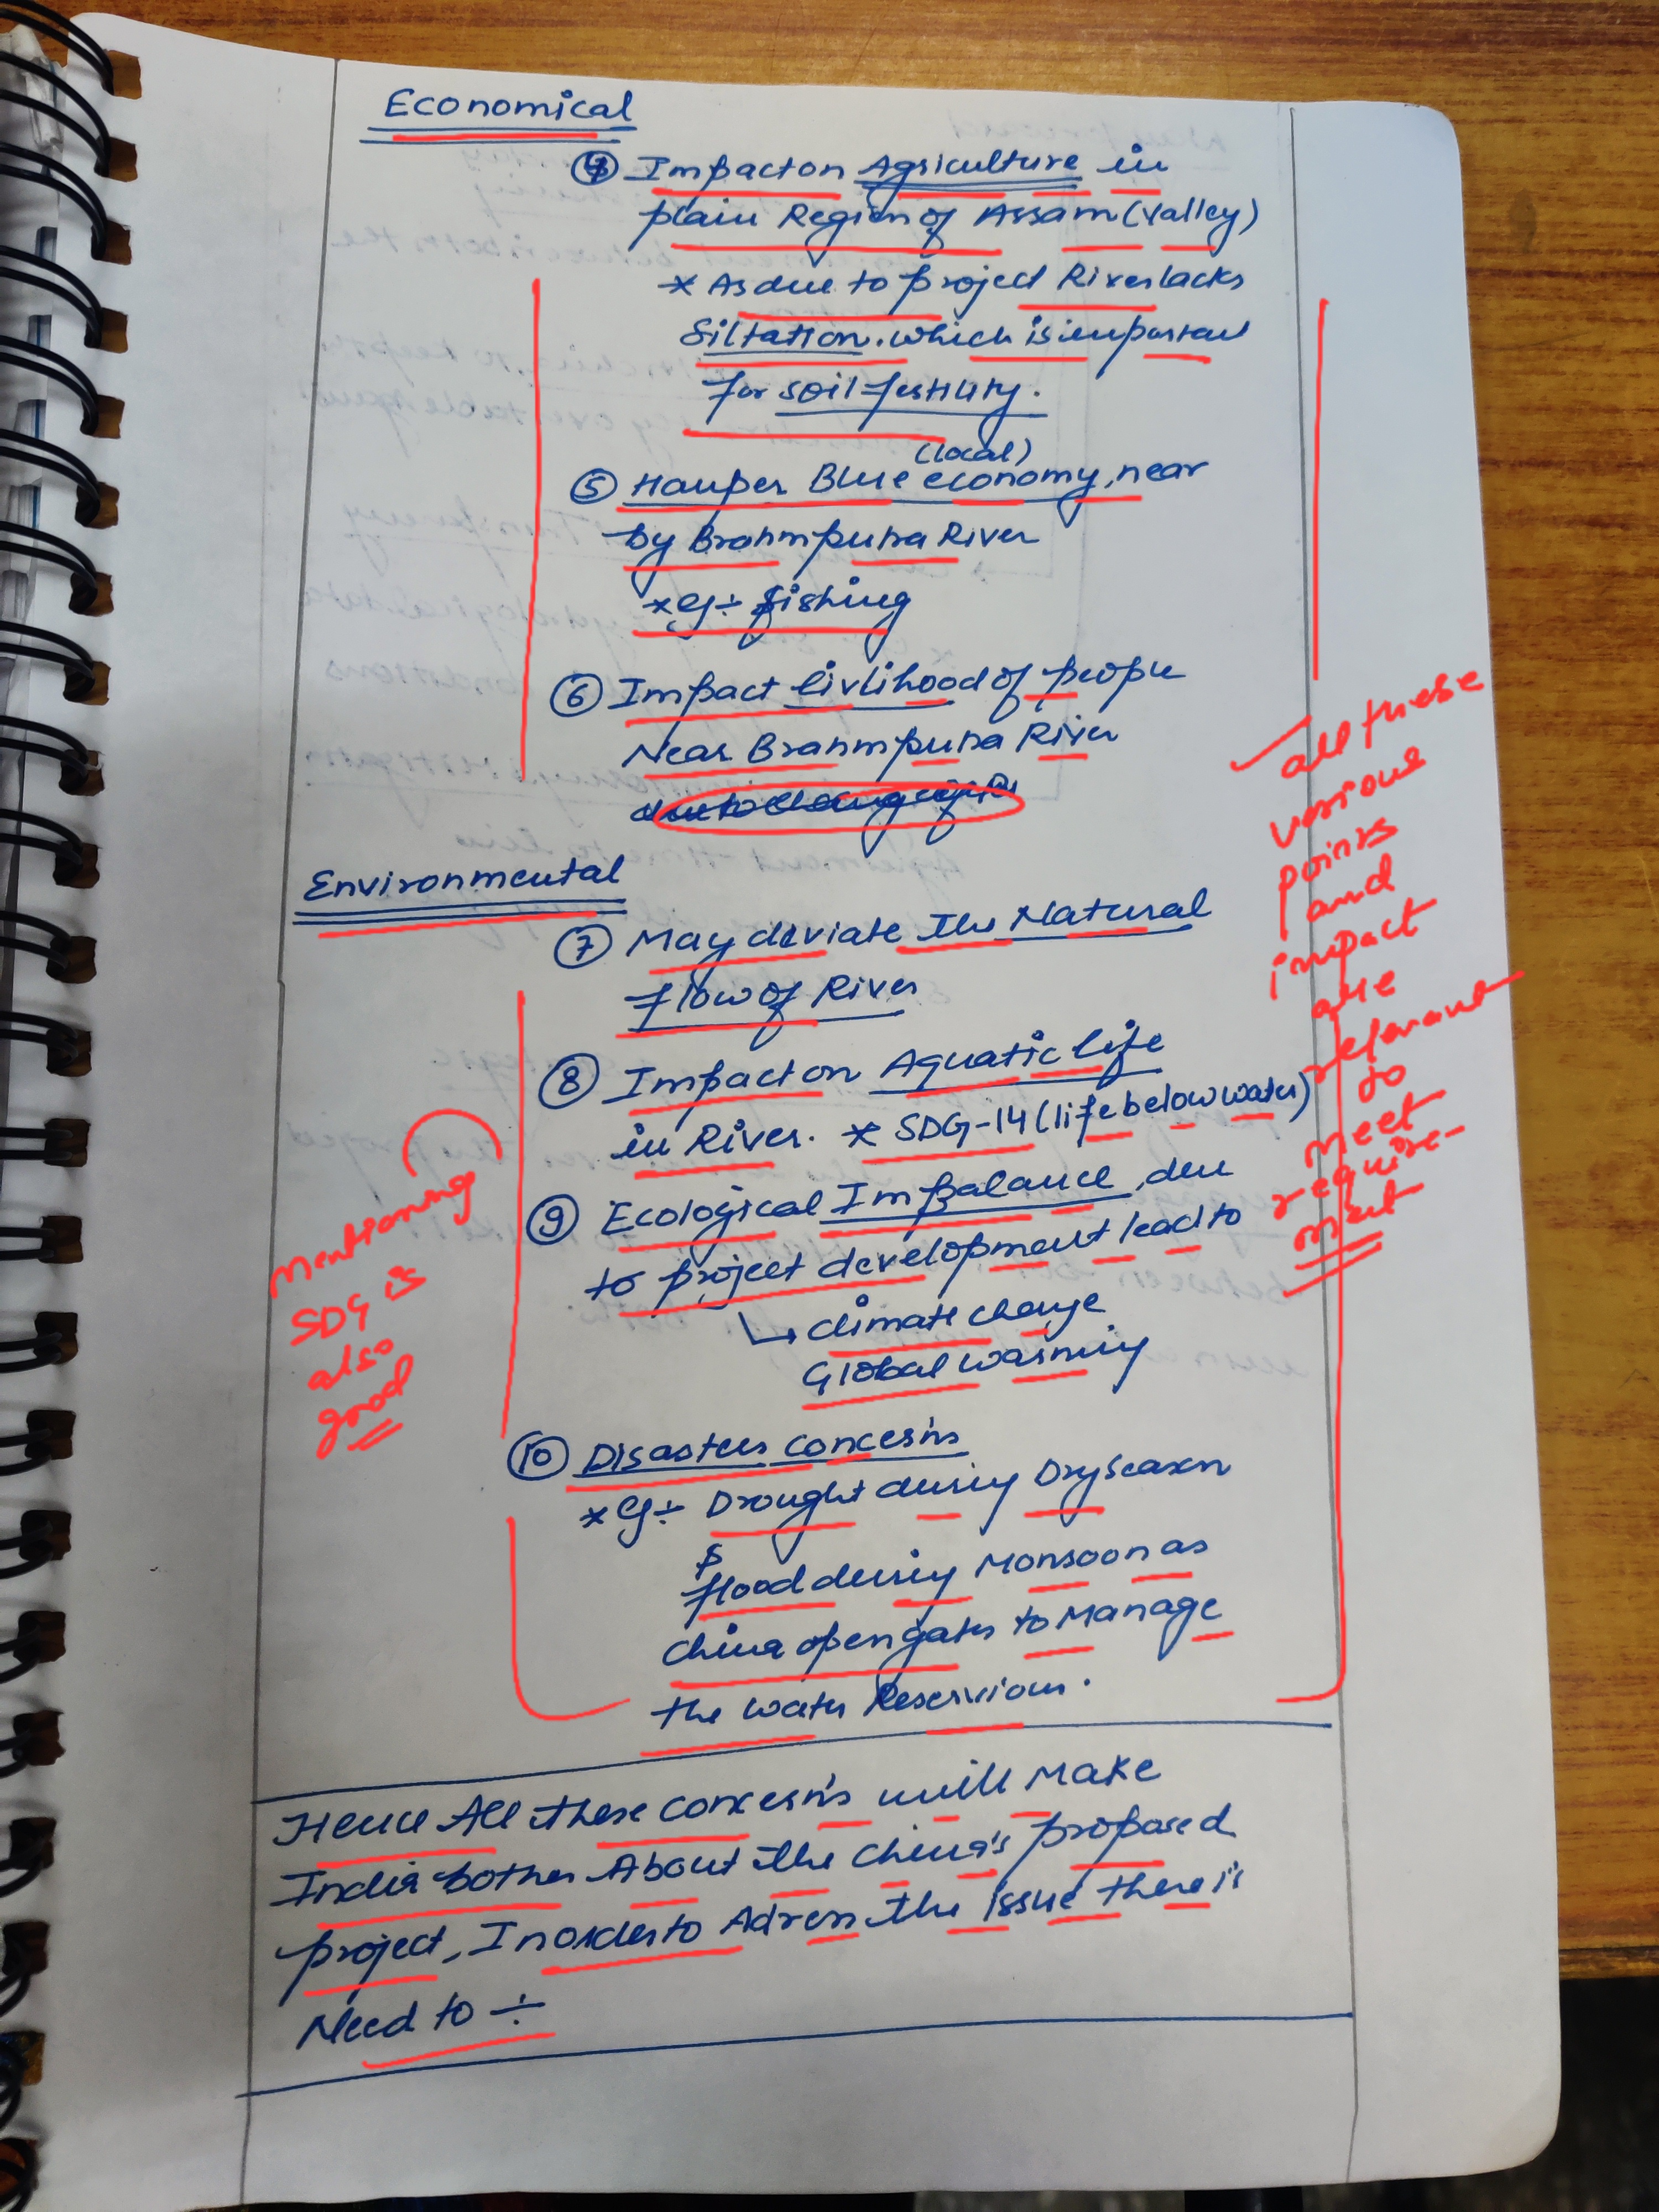 Economical
④ Impact on Agriculture in
plain Region of Assam (Valley)
* As due to project River lacks
Siltation. which is important
for soil fertility.
(local)
⑤ Hamper Blue economy, near
by Brahmputra River
* eg ÷ fishing
⑥ Impact livlihood of people
Near Brahmputra River
Environmental
⑦ May deviate the Natural
flow of River
⑧ Impact on Aquatic life
in River. * SDG-14 (life below water)
⑨ Ecological Imbalance, due
to project development lead to
↳ climate change
Global warming
⑩ Disasters concerns
* eg ÷ Drought during Dry Season
&
flood during Monsoon as
China open gates to Manage
the water Reserviour.
Hence All these concerns will Make
India bother About the China's proposed
project, In order to Adress the issue there is
Need to ÷
all these
various
points
and
impact
are
relevant
to
meet
require-
ment
Mentioning
SDG is
also
good